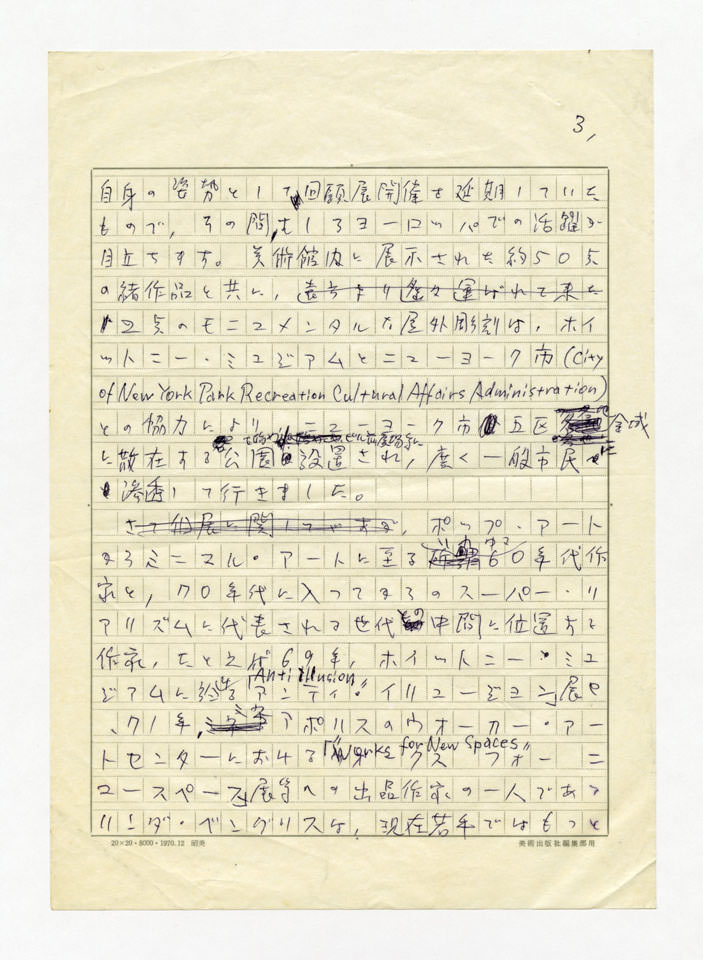 3,
自身の姿勢として回顧展開催を延期していた
もので，その間，むしろヨーロッパでの活躍が
目立ちます。美術館内に展示された約50点
の諸作品と共に，遠方より塔々運ばれて来た
12点のモニュメンタルな屋外彫刻は，ホイ
ットニー・ミュジアムとニューヨーク市(City
of New York Park Recreation Cultural Affairs Administration)
との協力により ニューヨーク市 五区 全域
に散在する 公園 ビル前広場等に 設置され，広く一般市民に
浸透して行きました。
さて個展に関してですが，ポップ・アート
よりミニマル・アートに至る いわゆる 60年代作
家と，70年代に入ってよりのスーパー・リ
アリズムに代表される世代との中間に位置する
作家，たとえば69年，ホイットニー・ミュ
ジアムに於る「アンティ・イリュージョン 展や
"Anti illusion"
，71年，ミネアポリスのウォーカー・アー
トセンターにおける「ワークス フォー ニ
"Works for New Spaces"
ュースペース」展等への出品作家の一人である
リンダ・ベングリスは，現在若手ではもっと
20×20・8000・1970.12 昭美
美術出版社編集部用